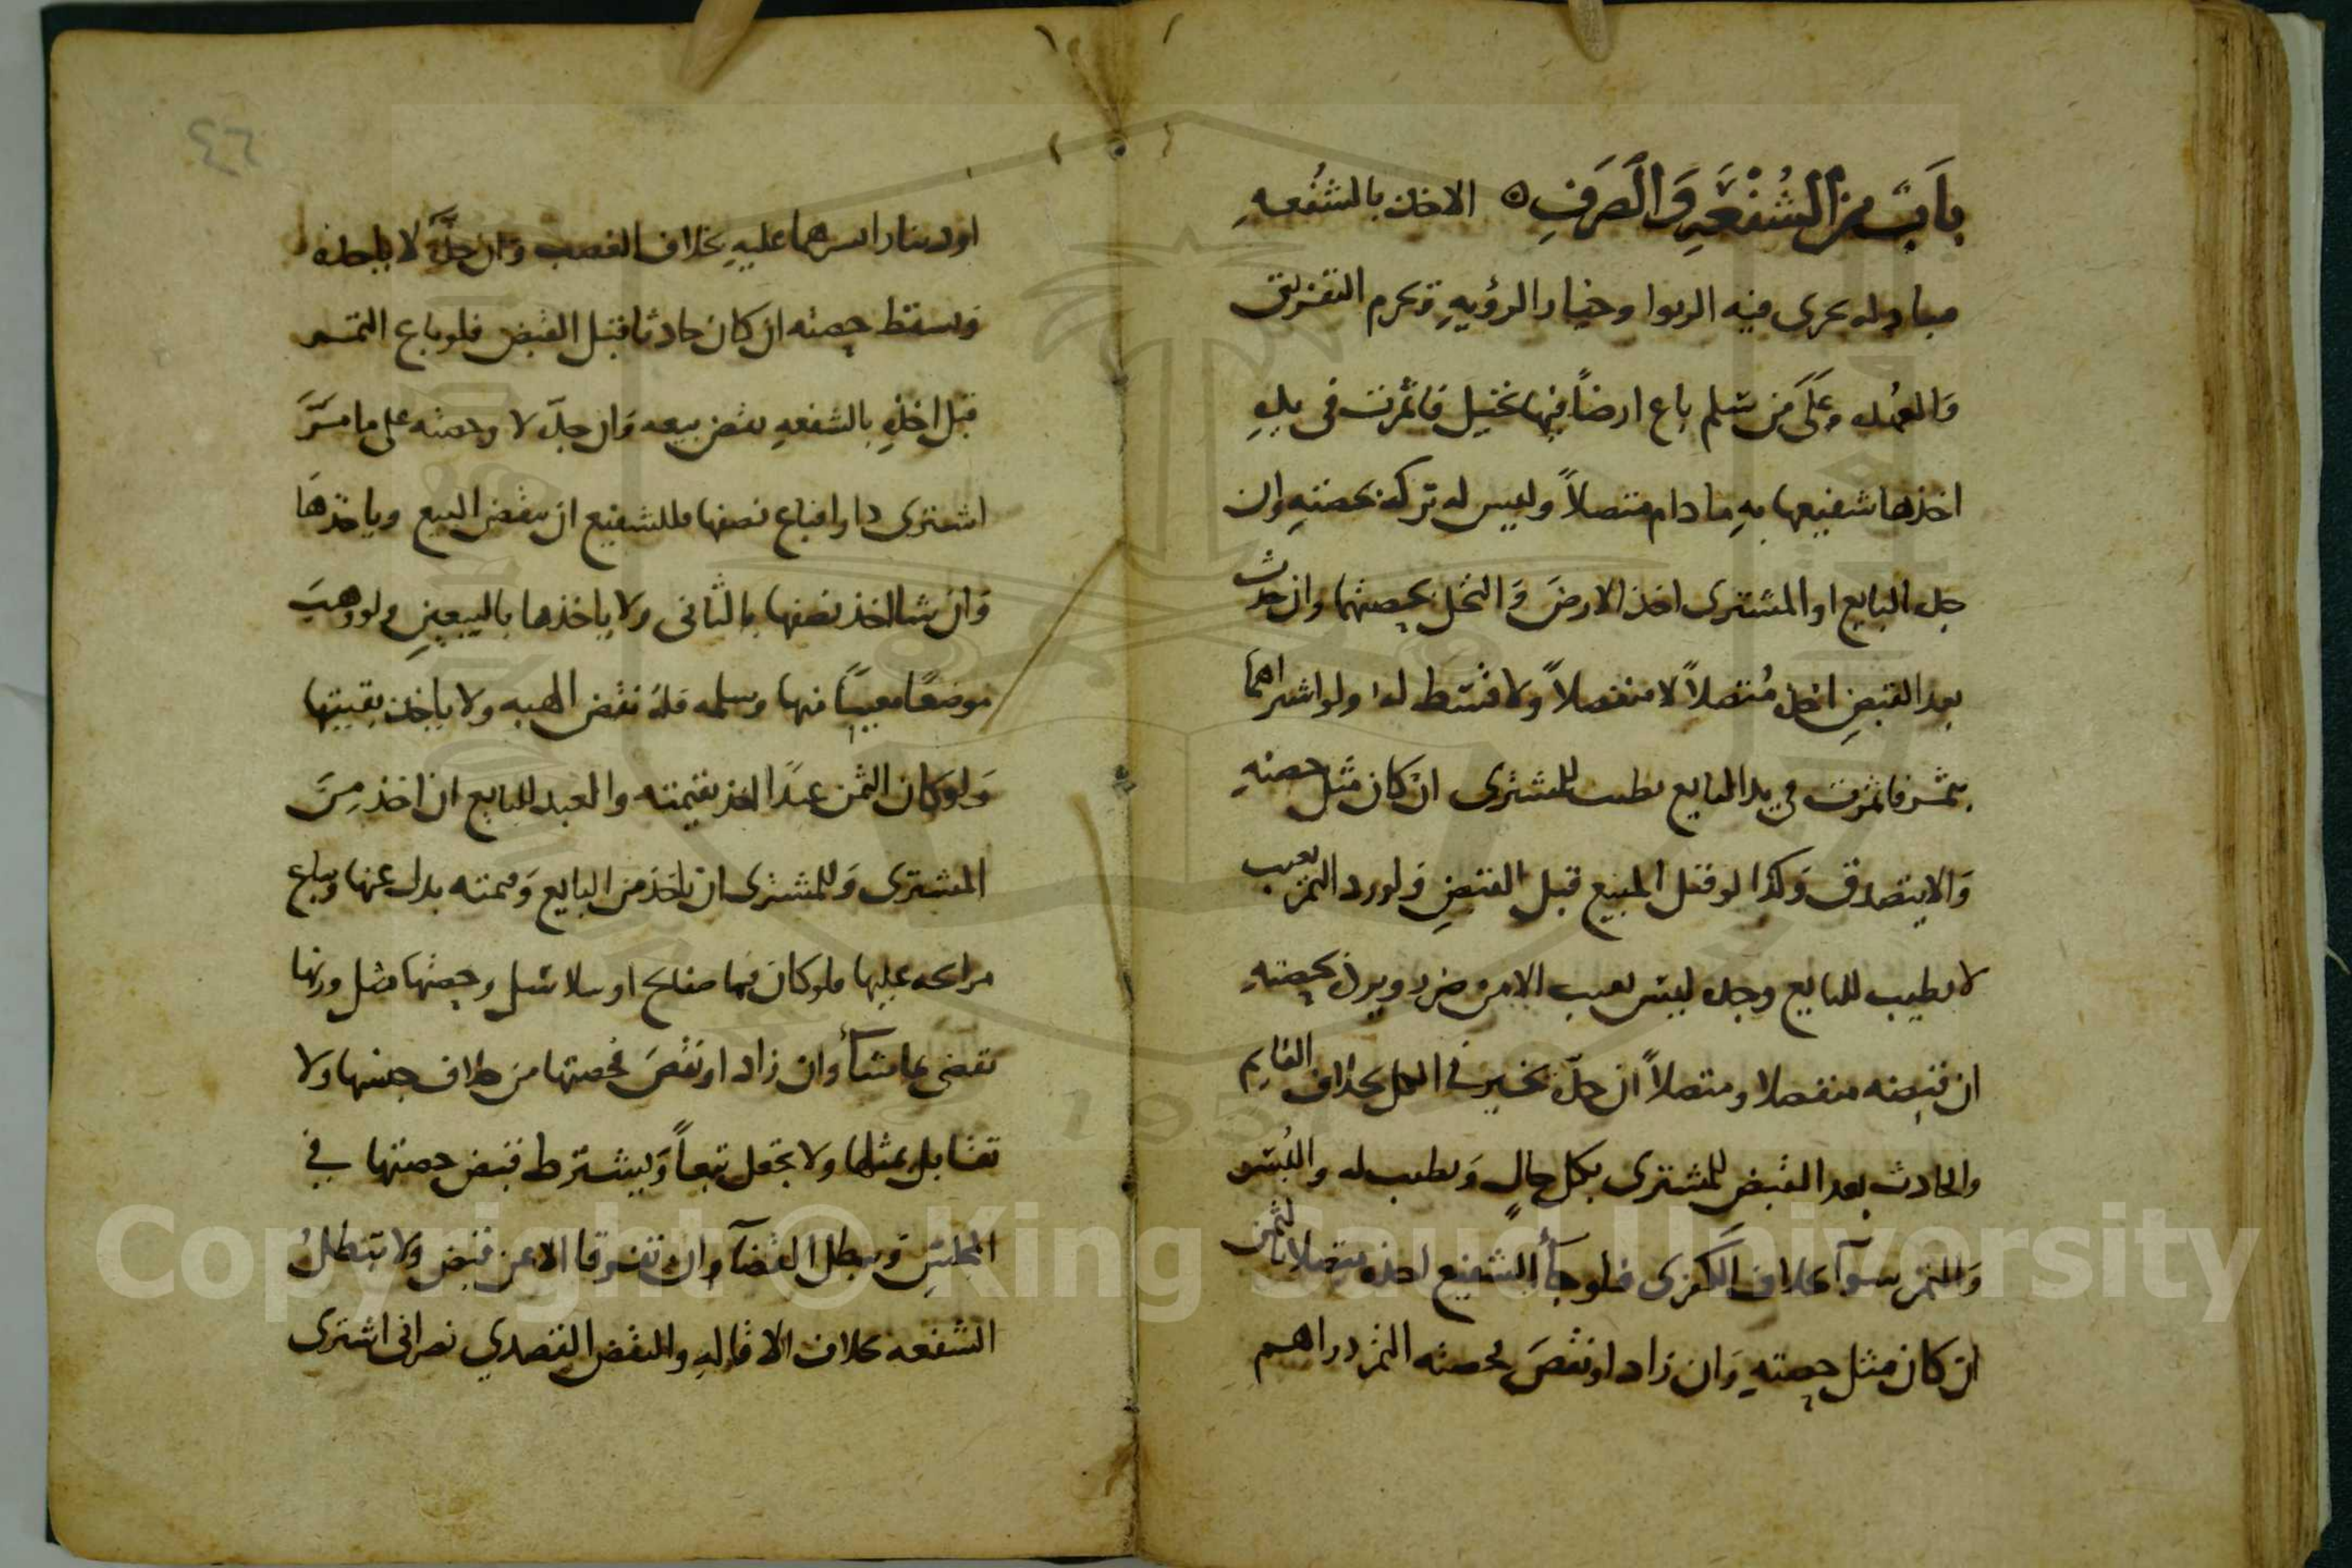 باب من الشفعة والصرف ه الاخذ بالشفعه
مبادله يجرى فيه الربوا وخيار الرؤيه وتحرم التفريق
والعهده وعلى من سلم باع ارضاً فيها نخيل فاثمرت فى يده
اخذها شفيعها به مادام متصلاً وليس له تركه بحصته وان
جده البايع او المشترى اخذ الارض والنخل بحصتهما وان حدث
بعد القبض اخذه متصلاً لا منفصلاً ولا قسط له ولو اشتراهما
بتمر فاثمرت في يد البايع يطيب للمشترى ان كان مثل حصته
والا يتصدق وكذا لو قتل المبيع قبل القبض ولو رد التمر بعيب
لا يطيب للبايع وجده ليس بعيب الا من ضرر ويرد بحصته
ان قبضه منفصلا ومتصلاً ان جدّ تخير في الكل بخلاف القايم
والحادث بعد القبض للمشترى بكل حالٍ ويطيب له والبُسر
والتمر سوآ بخلاف الكفرى فلو جأ الشفيع اخذه متصلا بالثمن
ان كان مثل حصته وان زاد او نقص فحصته التمر دراهم
او دينار السرهما عليه بخلاف الغصب وان جدّه لا ياخذه
وسقط حصته ان كان حادثا قبل القبض فلو باع التمر
قبل اخذه بالشفعه نقض بيعه وان جدّ لا وحصته على ما مرّ
اشترى دارا فباع نصفها فللشفيع ان ينقض البيع وياخذها
وان شا اخذ نصفها بالثانى ولا ياخذها بالبيعين ولو وهب
موضعاً معيناً منها وسلمه فله نقض الهبه ولا ياخذ بقيتها
ولو كان الثمن عبداً اخذ بقيمته والعبد للبايع ان اخذ من
المشترى وللمشترى ان ياخذ من البايع وقيمته بدل عنها ويباع
مرابحه عليها فلو كان فيها صفايح او سلاسل وحصتها مثل وزنها
نقضى بما شأ وان زاد او نقص فحصتها من خلاف جنسها ولا
تقابل بمثلها ولا يجعل تبعاً ويشترط قبض حصتها في
المجلس ويبطل القضآ وان تفرقا لا عن قبض ولا تبطل
الشفعه بخلاف الاقاله والنقض القصدي نصرانى اشترى
٤٦
Copyright © King Saud University
1957